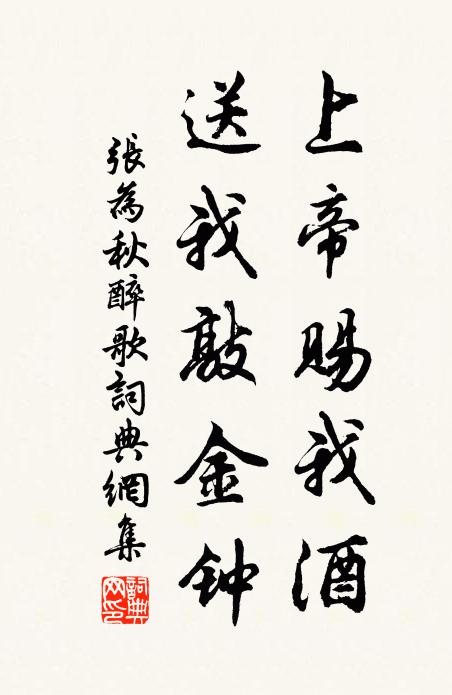 上帝賜我酒
送我敲金钟
張為秋醉歌詞典網集
詞典網印